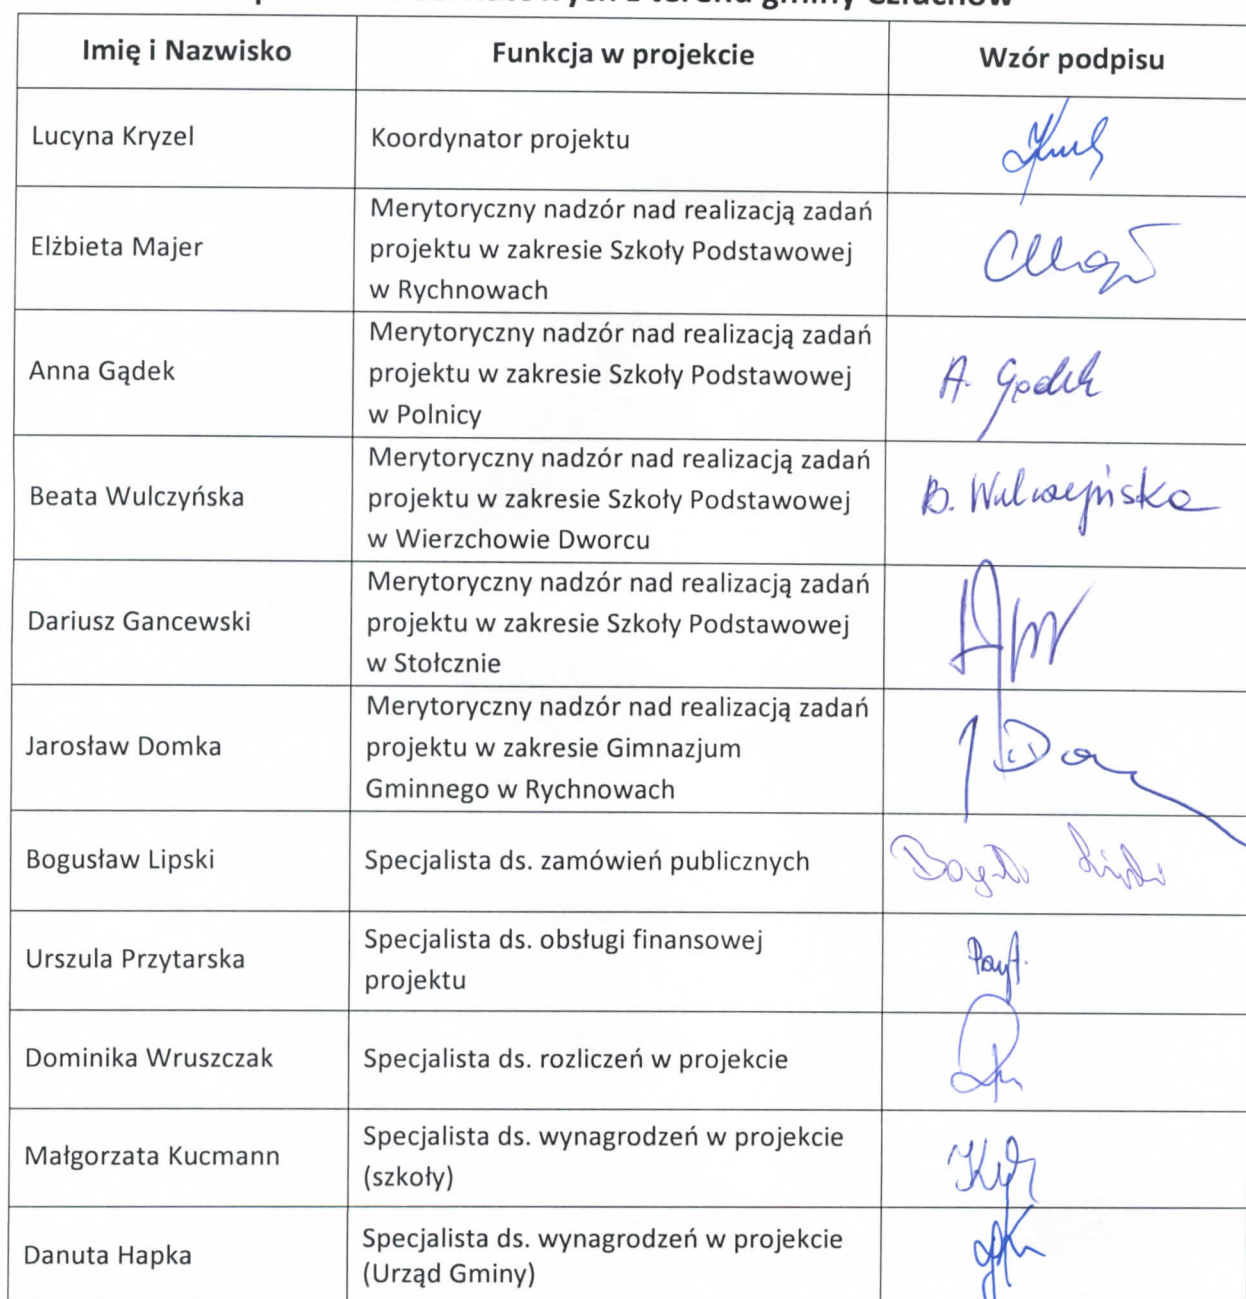 z terenu gminy Człuchów
Imię i Nazwisko
Funkcja w projekcie
Wzór podpisu
Lucyna Kryzel
Koordynator projektu
Elżbieta Majer
Merytoryczny nadzór nad realizacją zadań
projektu w zakresie Szkoły Podstawowej
w Rychnowach
Anna Gądek
Merytoryczny nadzór nad realizacją zadań
projektu w zakresie Szkoły Podstawowej
w Polnicy
A. Gądek
Beata Wulczyńska
Merytoryczny nadzór nad realizacją zadań
projektu w zakresie Szkoły Podstawowej
w Wierzchowie Dworcu
B. Wulczyńska
Dariusz Gancewski
Merytoryczny nadzór nad realizacją zadań
projektu w zakresie Szkoły Podstawowej
w Stołcznie
Jarosław Domka
Merytoryczny nadzór nad realizacją zadań
projektu w zakresie Gimnazjum
Gminnego w Rychnowach
Bogusław Lipski
Specjalista ds. zamówień publicznych
Urszula Przytarska
Specjalista ds. obsługi finansowej
projektu
Dominika Wruszczak
Specjalista ds. rozliczeń w projekcie
Małgorzata Kucmann
Specjalista ds. wynagrodzeń w projekcie
(szkoły)
Danuta Hapka
Specjalista ds. wynagrodzeń w projekcie
(Urząd Gminy)